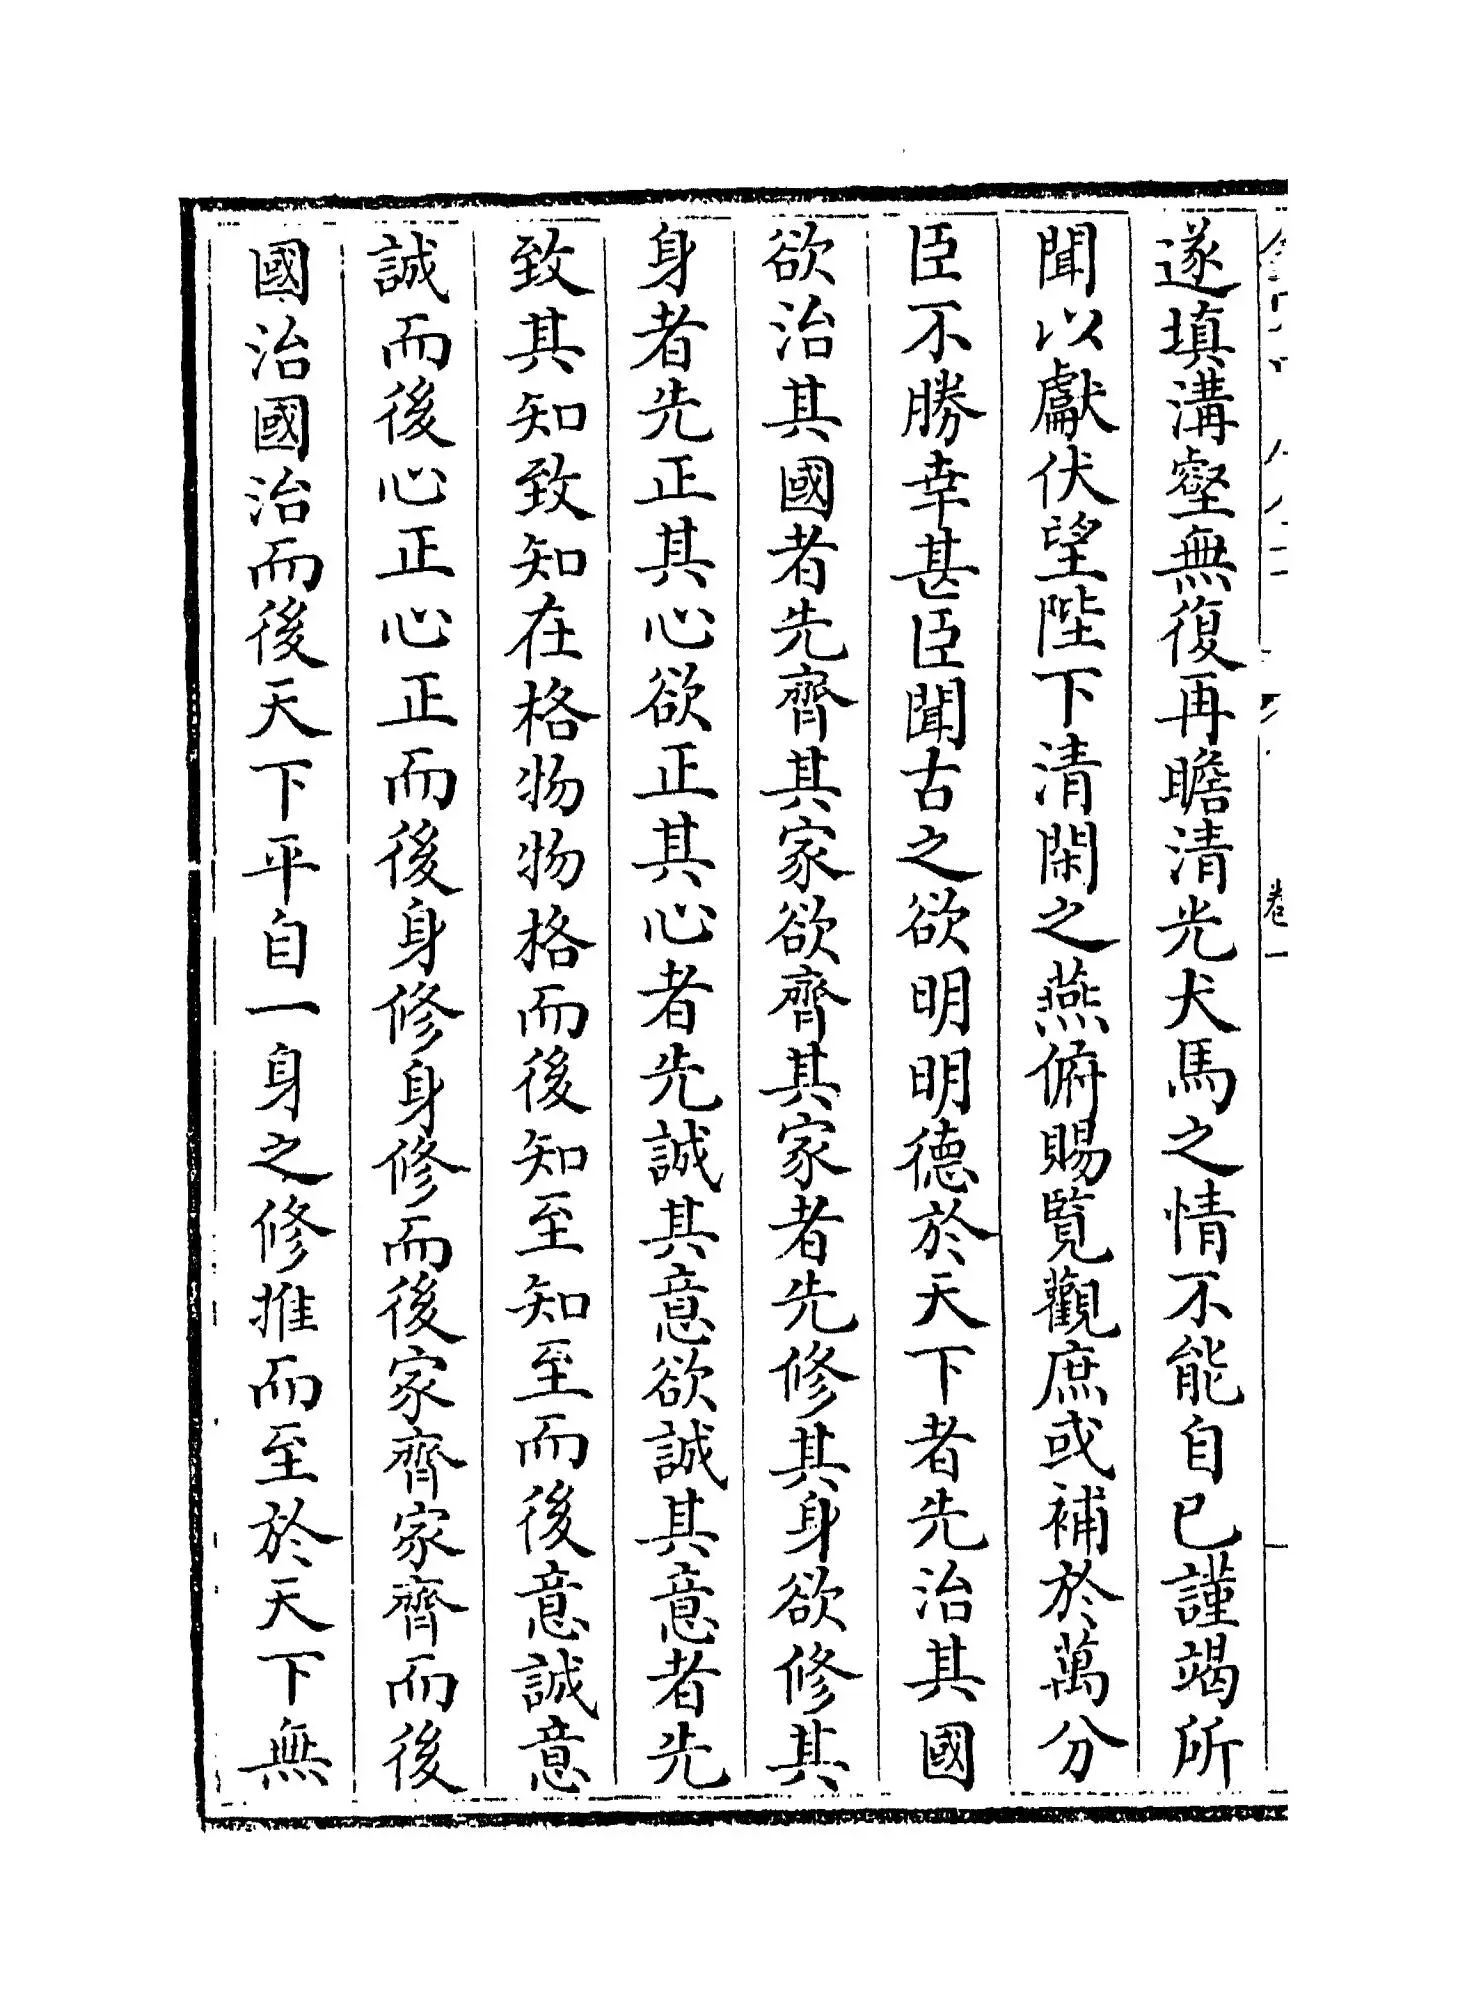 遂填溝壑無復再瞻清光犬馬之情不能自已謹竭所
聞以獻伏望陛下清閑之燕俯賜覧觀庶或補於萬分
臣不勝幸甚臣聞古之欲明明德於天下者先治其國
欲治其國者先齊其家欲齊其家者先修其身欲修其
身者先正其心欲正其心者先誠其意欲誠其意者先
致其知致知在格物物格而後知至知至而後意誠意
誠而後心正心正而後身修身修而後家齊家齊而後
國治國治而後天下平自一身之修推而至於天下無
卷一